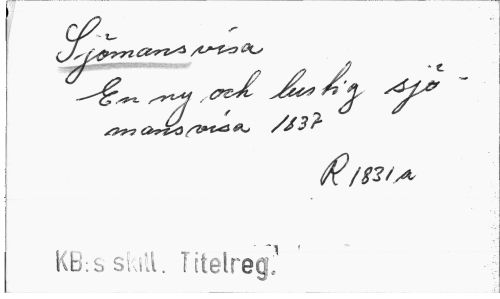 Sjömansvisa
En ny och lustig sjö-
mansvisa 1837
R 1831 a
KB:s skill. Titelreg.